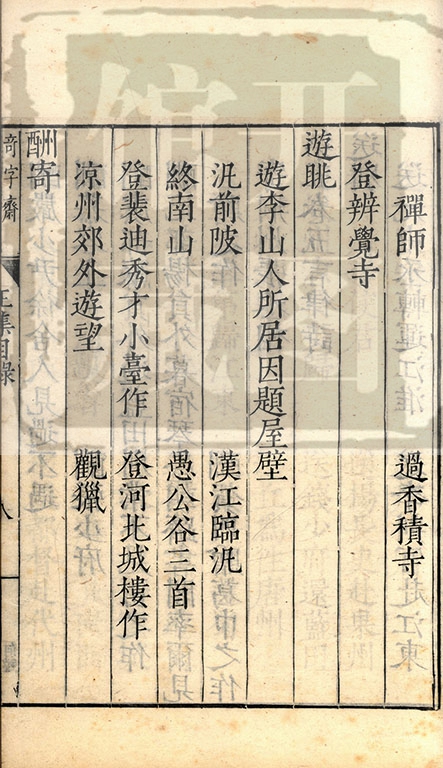 禪師　過香積寺
登辨覺寺
遊眺
遊李山人所居因題屋壁
汎前陂　漢江臨汎
終南山　愚公谷三首
登裴迪秀才小臺作　登河北城樓作
凉州郊外遊望　觀獵
酬寄
奇字齋　王集目錄　八